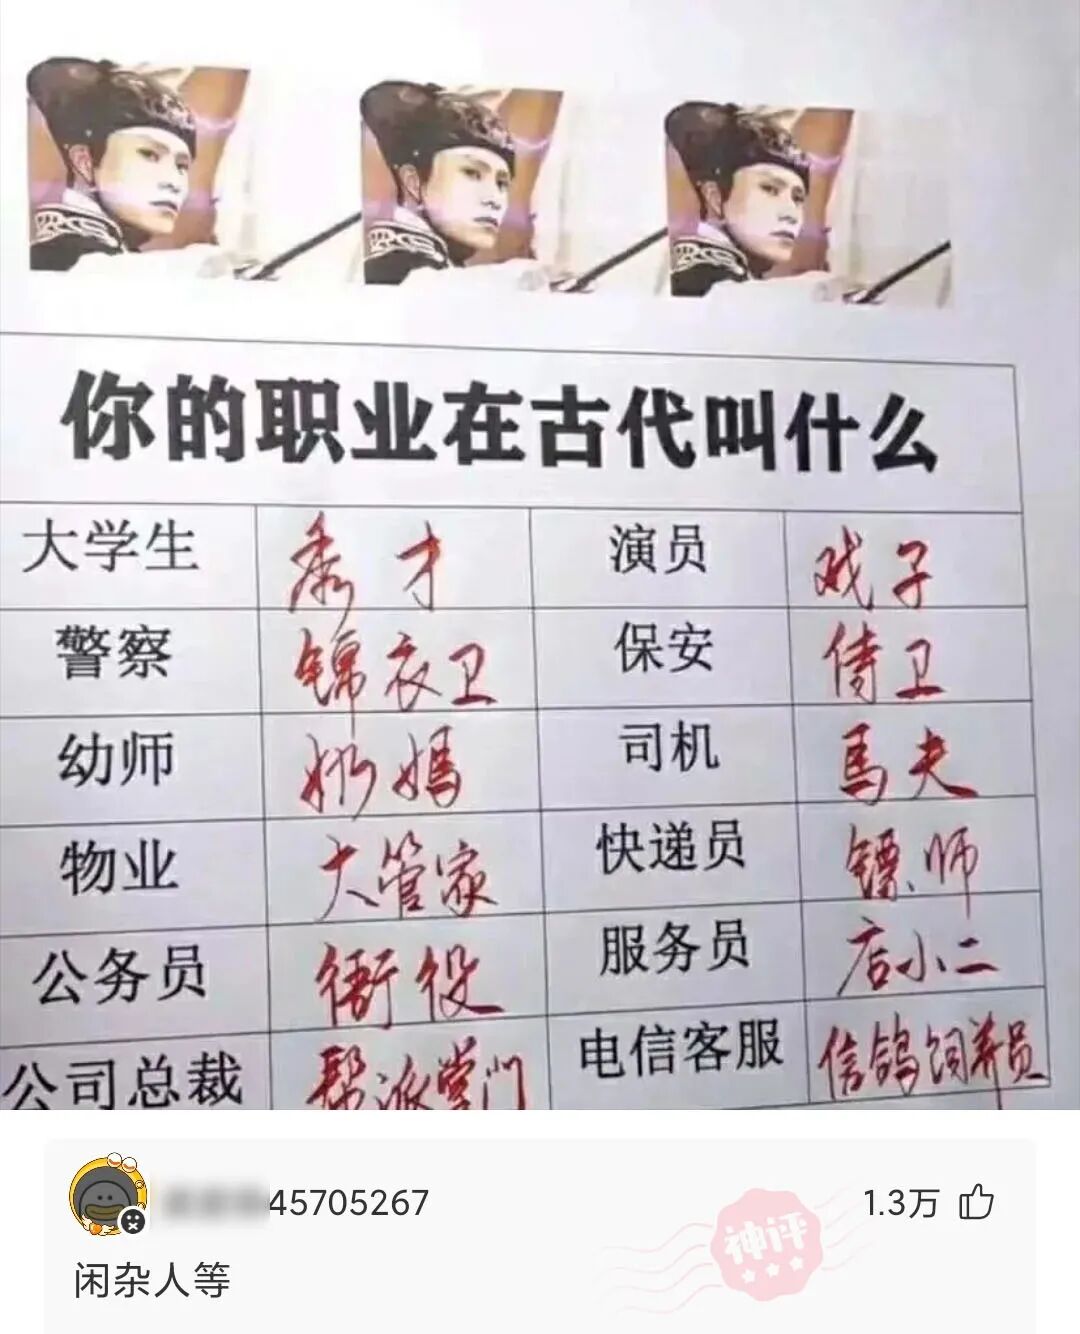 你的职业在古代叫什么
大学生 秀才 演员 戏子
警察 锦衣卫 保安 侍卫
幼师 奶媽 司机 馬夫
物业 大管家 快递员 镖师
公务员 衙役 服务员 店小二
公司总裁 帮派掌门 电信客服 信鸽饲养员
45705267 1.3万
神评
闲杂人等